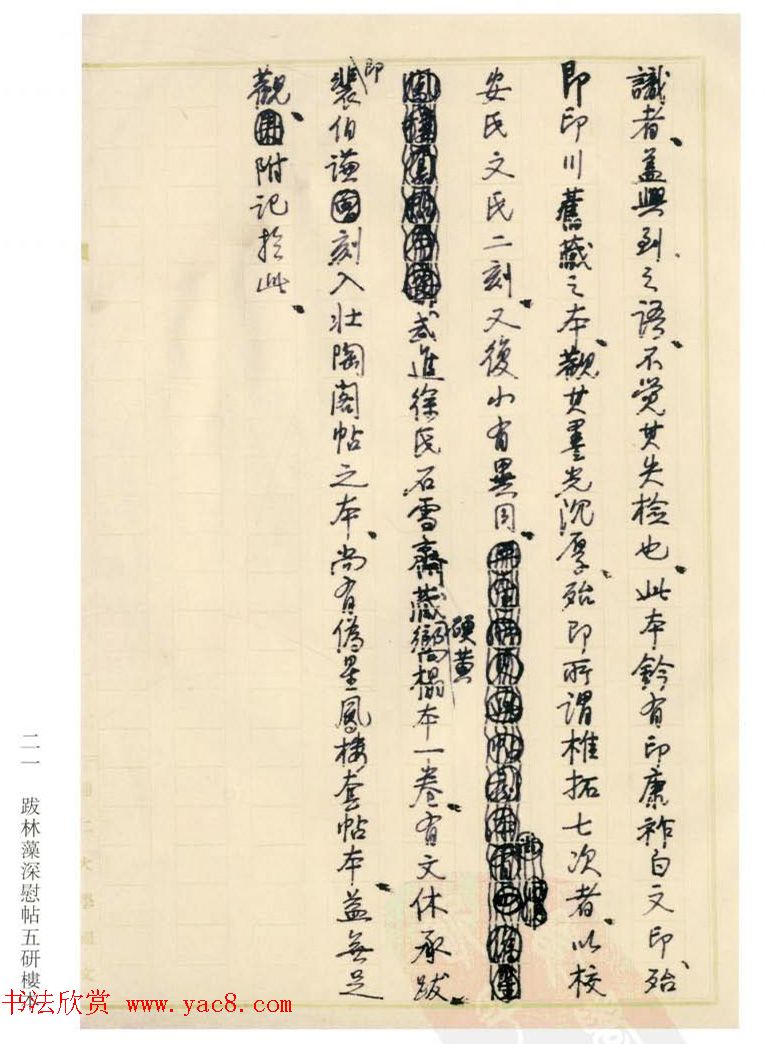 識者、蓋興到之語、不覺其失檢也、此本鈐有印康祚白文印、殆
即印川舊藏之本、觀其墨光沉厚、殆即所謂椎拓七次者、以校
安氏文氏二刻、又復小有異同、
武進徐氏石雪齋藏硬黃嚮搨本一卷、有文休承跋
即裴伯謙刻入壯陶閣帖之本、尚有偽星鳳樓套帖本、益無足
觀、附記於此、
二一 跋林藻深慰帖五研樓本
书法欣赏 www.yac8.com